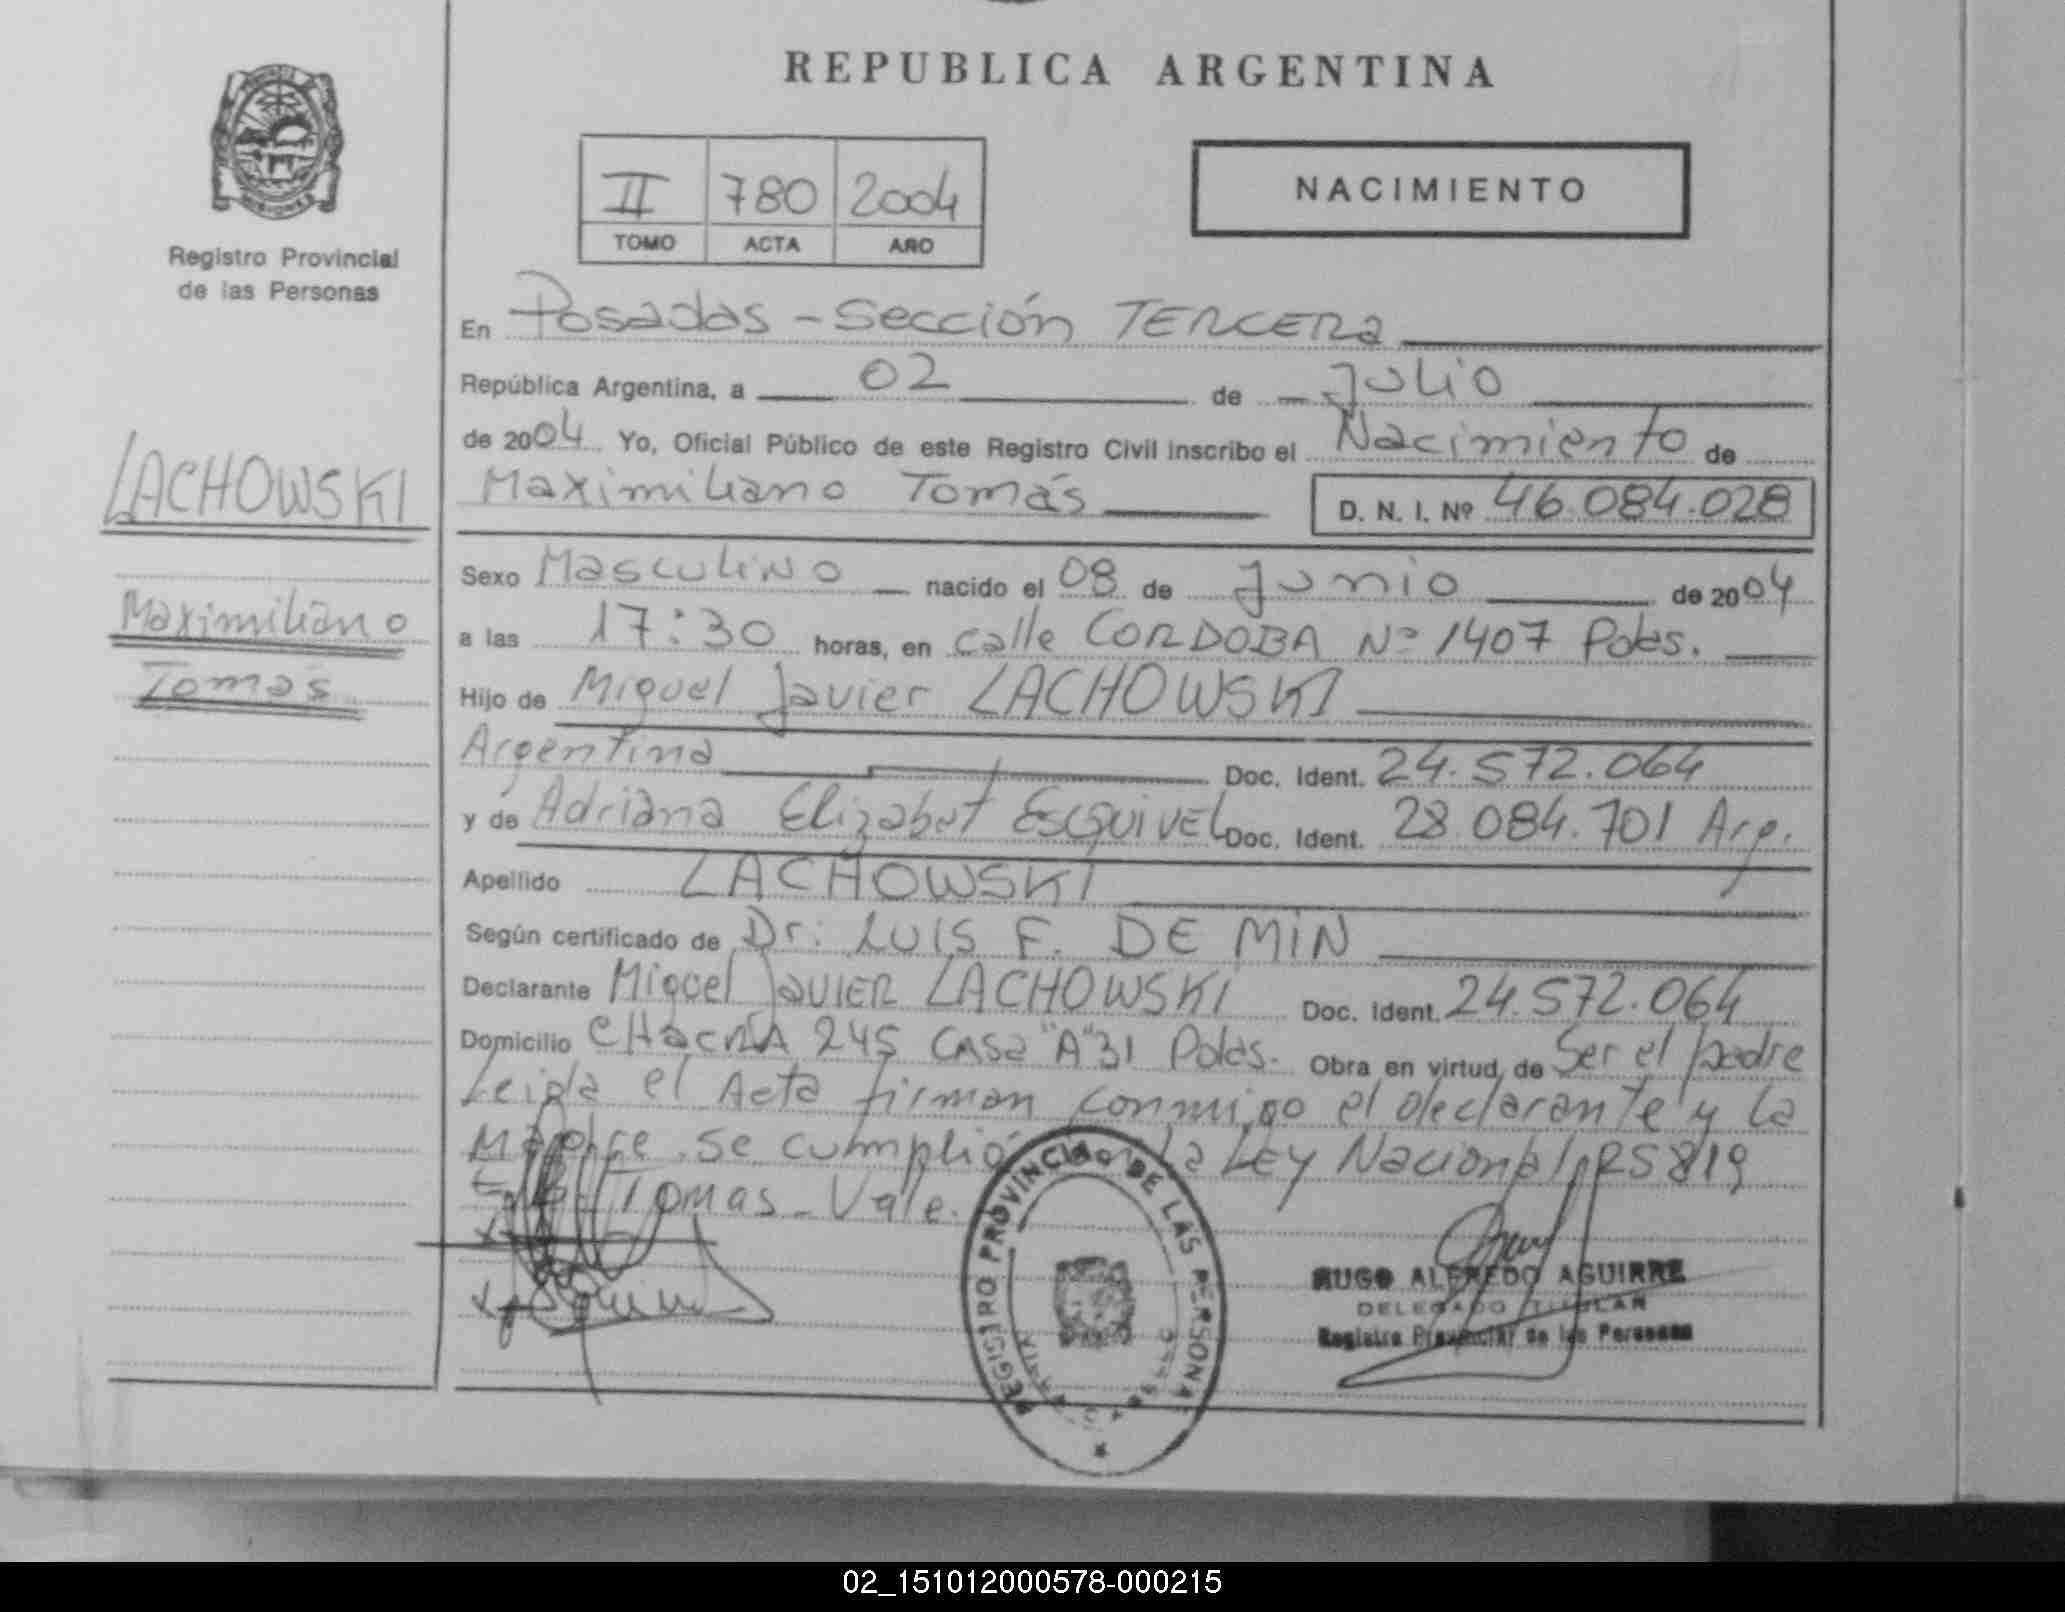 REPUBLICA ARGENTINA
MISIONES
Registro Provincial
de las Personas
II 780 2004
TOMO ACTA AÑO
NACIMIENTO
En Posadas - Sección TERCERA
República Argentina, a 02 de Julio
de 2004 Yo, Oficial Público de este Registro Civil inscribo el Nacimiento de
Maximiliano Tomás D. N. I. Nº 46.084.028
LACHOWSKI
Maximiliano
Tomás
Sexo Masculino nacido el 08 de Junio de 2004
a las 17:30 horas, en calle CORDOBA Nº 1407 Pdas.
Hijo de Miguel Javier LACHOWSKI
Argentina Doc. Ident. 24.572.064
y de Adriana Elizabet ESQUIVEL Doc. Ident. 28.084.701 Arg.
Apellido LACHOWSKI
Según certificado de Dr: LUIS F. DE MIN
Declarante Miguel JAVIER LACHOWSKI Doc. Ident. 24.572.064
Domicilio CHACRA 245 CASA "A" 31 Pdas. Obra en virtud de Ser el padre
Leida el Acta firman conmigo el declarante y la
Madre. Se cumplió la LEY Nacional
Tomas - Vale.
REGISTRO PROVINCIAL DE LAS PERSONAS
HUGO ALFREDO AGUIRRE
DELEGADO TITULAR
Registro Provincial de las Personas
02_151012000578-000215